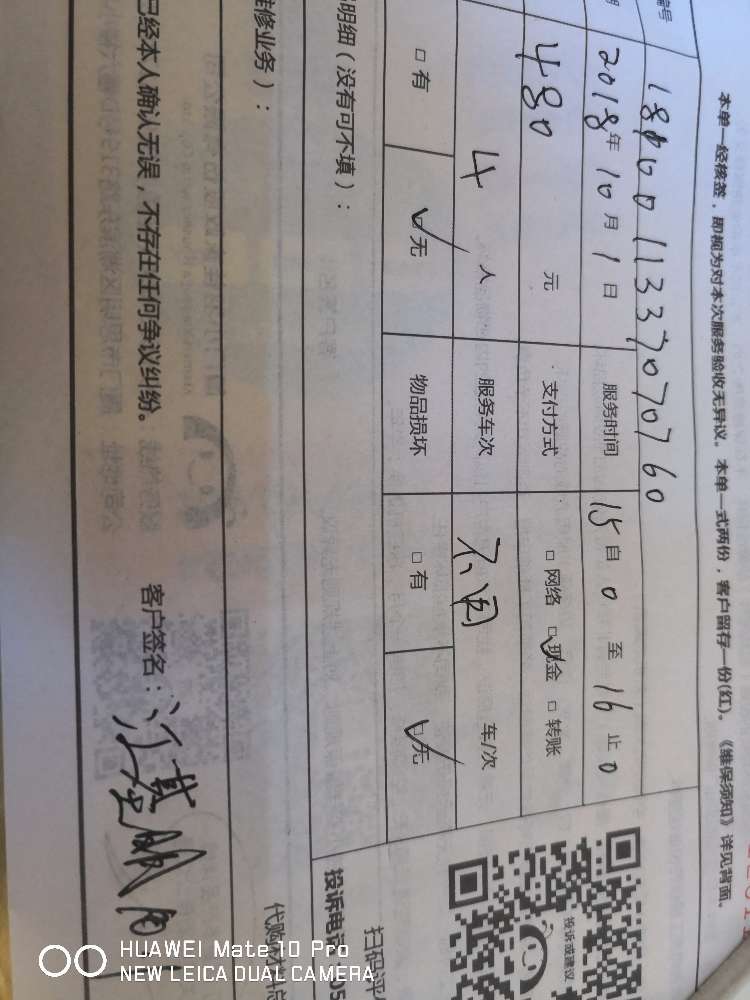 本单一经核签，即视为对本次服务验收无异议。本单一式两份，客户留存一份(红)。《维保须知》详见背面。
编号 1800011337070760
期 2018年10月1日 服务时间 15自0至16止0
480 元 支付方式 □网络 ☑现金 □转账
4 人 服务车次 不用 车/次
□有 ☑无 物品损坏 □有 ☑无
明细（没有可不填）：
维修业务）：
已经本人确认无误，不存在任何争议纠纷。 客户签名：
投诉或建议
扫码评
投诉电话：05
代购材料总
HUAWEI Mate 10 Pro
NEW LEICA DUAL CAMERA